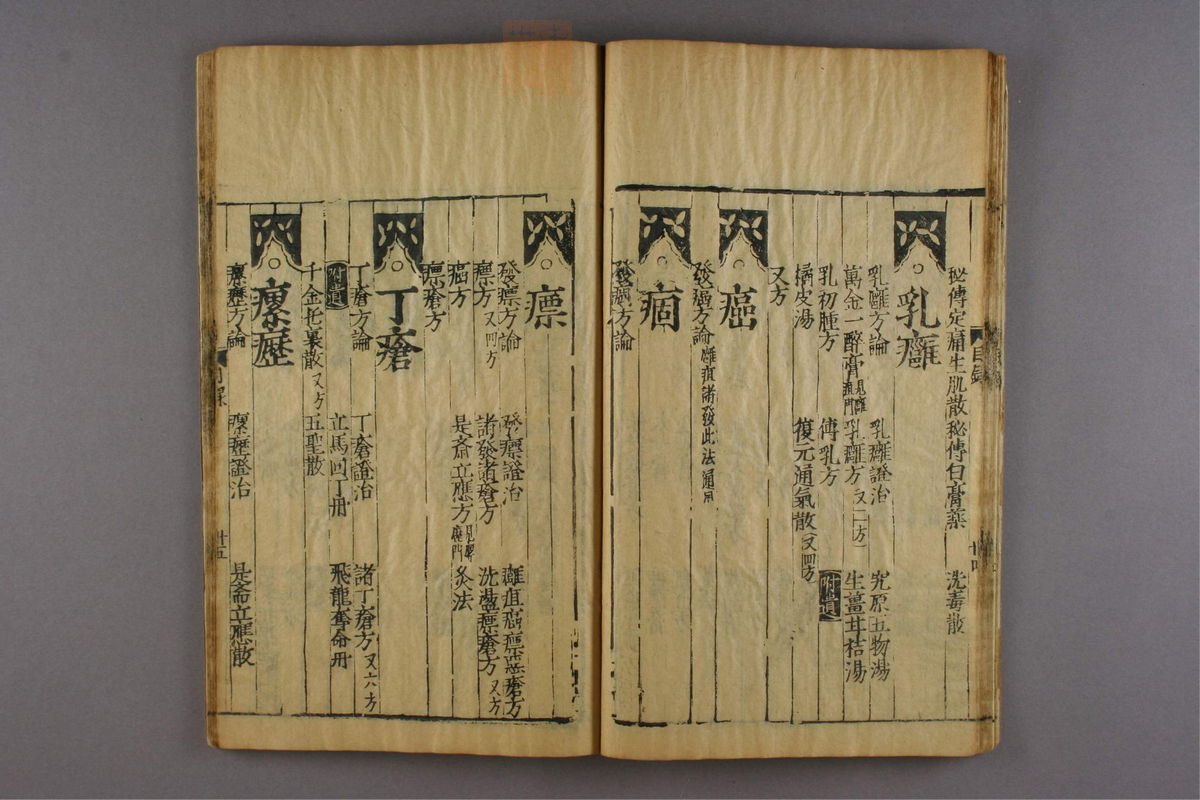 秘傳定痛生肌散 秘傳白膏藥 洗毒散
乳癰
乳癰方論 乳癰證治 究原五物湯
萬金一醉膏 見癰疽門 乳癰方 又二方 生薑甘桔湯
乳初腫方 傅乳方 附遺
橘皮湯 復元通氣散 又四方
又方
癌
發癌方論 癰疽諸發此法通用
痼
發痼方論
目錄 十四
瘭
發瘭方論 發瘭證治 癰疽癌瘭惡瘡方
瘭方 又四方 諸發諸瘡方 洗盪瘭瘡方 又方
癌方 是齋立應方 灸法
瘭瘡方
丁瘡
丁瘡方論 丁瘡證治 諸丁瘡方 又六方
附遺 立馬回丁丹 飛龍奪命丹
千金托裏散 又方 五聖散
瘰癧
瘰癧方論 瘰癧證治 是齋立應散
目錄 十五